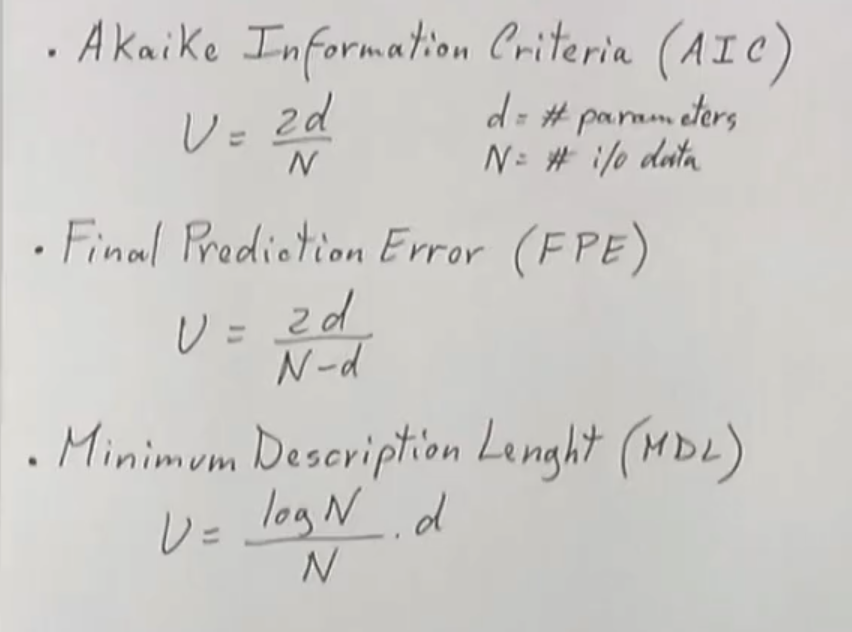 · Akaike Information Criteria (AIC)
U = 2d/N
d = # parameters
N = # i/o data
· Final Prediction Error (FPE)
U = 2d/N-d
· Minimum Description Lenght (MDL)
U = log N/N . d